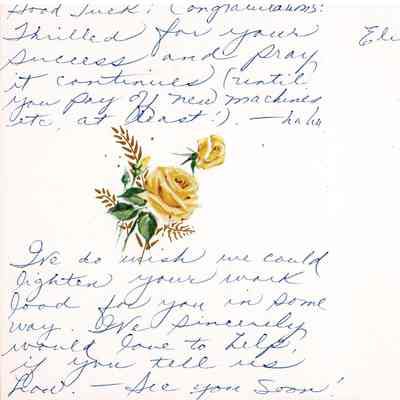 Good Luck! Congratulations!
Thrilled for your
success and pray
it continues (until
you pay off new machines
etc. at least!). — ha ha
Eli
We do wish we could
lighten your work
load for you in some
way. We sincerely
would love to help,
if you tell us
how. — See you soon!